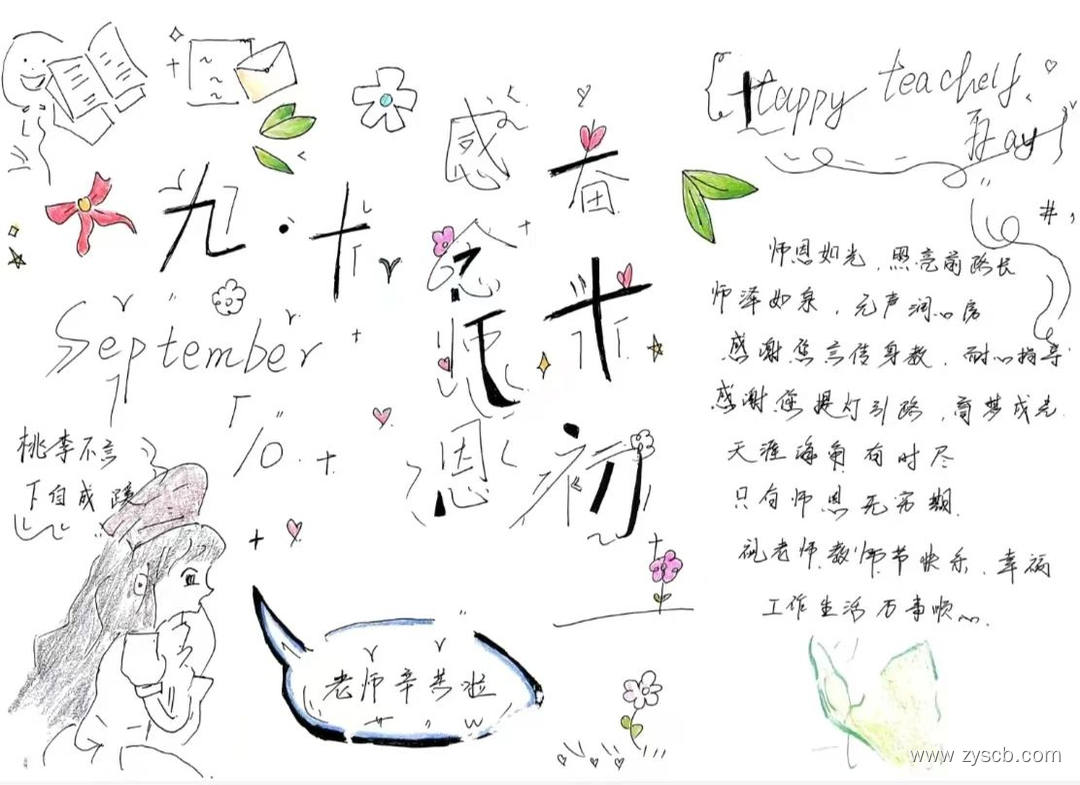 九·十
September
10
桃李不言
下自成蹊
感念师恩
奋
初
老师辛苦啦
Happy teachers'
Day
师恩如光，照亮前路长
师泽如泉，无声润心房
感谢您言传身教，耐心指导
感谢您提灯引路，育梦成光.
天涯海角有时尽
只有师恩无穷期.
祝老师教师节快乐，幸福
工作生活万事顺心.
www.zyscb.com